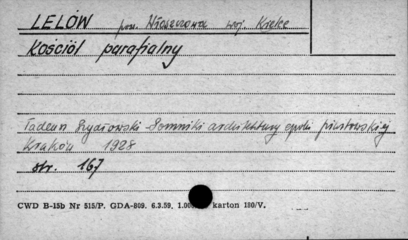 LELÓW pow. Włoszczowa woj. Kielce
Kościół parafialny
Tadeusz Szydłowski Pomniki architektury epoki piastowskiej
Kraków 1928
str. 167
CWD B-15b Nr 515/P. GDA-809. 6.3.59, karton 180/V.